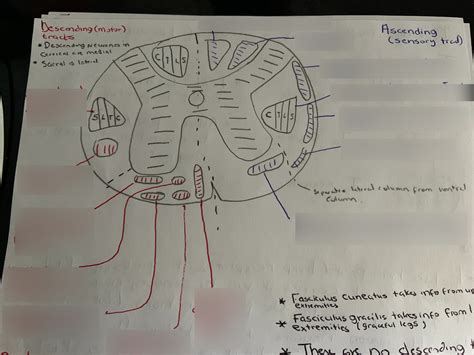 Descending (motor)
tracts
* Descending neurones in
cervical are medial
* Sacral is lateral
Ascending
(sensory tract)
C T L S
S L T C
C T L S
Separates lateral column from ventral
column
* Fasciculus cuneatus takes info from up
extremities
* Fasciculus gracilis takes info from l
extremities (graceful legs)
* There are no descending t